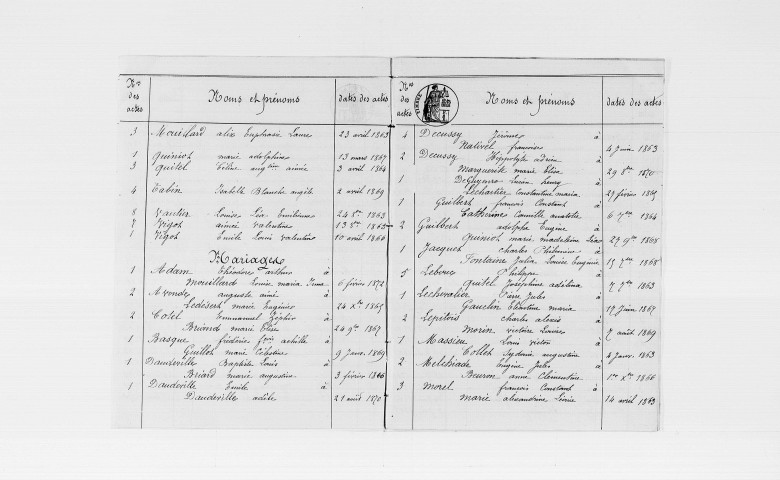 Nos des actes Noms et prénoms dates des actes
3 Mouillard alix Euphasie Laure 23 avril 1863
1 Quiniot marie adolphine 13 mars 1867
3 Quitel Céline aimée 3 avril 1864
4 Tabin Isabelle Blanche 2 avril 1869
8 Vautier Louise 24 1863
7 Vigot aimée valentine 13 8bre 1863
1 Vigot Emile Louis valentin 10 avril 1866
Mariages
1 Adam arthur à
Mouillard Louise maria 6 février 1872
2 auguste aimé à
marie 24 Xbre 1869
2 Cotel Emmanuel à
Briand marie Elise 24 9bre 1869
1 Basque frédéric achille à
Guillot marie Célestine 9 Janv 1869
1 Daudeville Baptiste Louis à
Briard marie augustine 3 février 1866
1 Daudeville Emile à
Daudeville adèle 21 août 1870
Nos des actes Noms et prénoms dates des actes
4 Decussy Jérôme à
Nativel françoise 4 Juin 1863
2 Decussy Hippolyte adrien à
Marguerite marie Elise 29 8bre 1870
1 Lucien henry à
Lechartier Constantine maria 27 février 1869
1 Guilbert françois Constant à
Catherine Camille 6 7bre 1864
2 Guilbert adolphe Eugène à
Quiniot marie madeleine 27 9bre 1868
1 Jacquot charles à
Fontaine Julia Louise Eugénie 15 7bre 1868
5 Philippe à
Quitel Joséphine adelina 7 9bre 1863
1 Lechevalier Pierre Jules à
Gauclin maria 17 Juin 1869
2 charles alexis à
Morin victoire Louise 7 août 1869
1 Massieu Louis victor à
Collet augustine 4 Janv 1863
2 Melchiade Eugène Jules à
anna Clémentine 1er Xbre 1866
3 Morel françois Constant à
Marie alexandrine 14 avril 1863